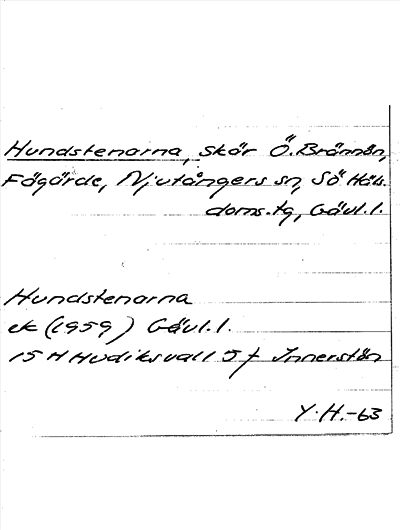 Hundstenarna, skär Ö. Brännön,
Fågörde, Njutångers sn, Sö Häls.
doms. tg, Gävl. l.
Hundstenarna
ek (1959) Gävl. l.
15 H Hudiksvall 5 f Innerstön
Y. H. -63